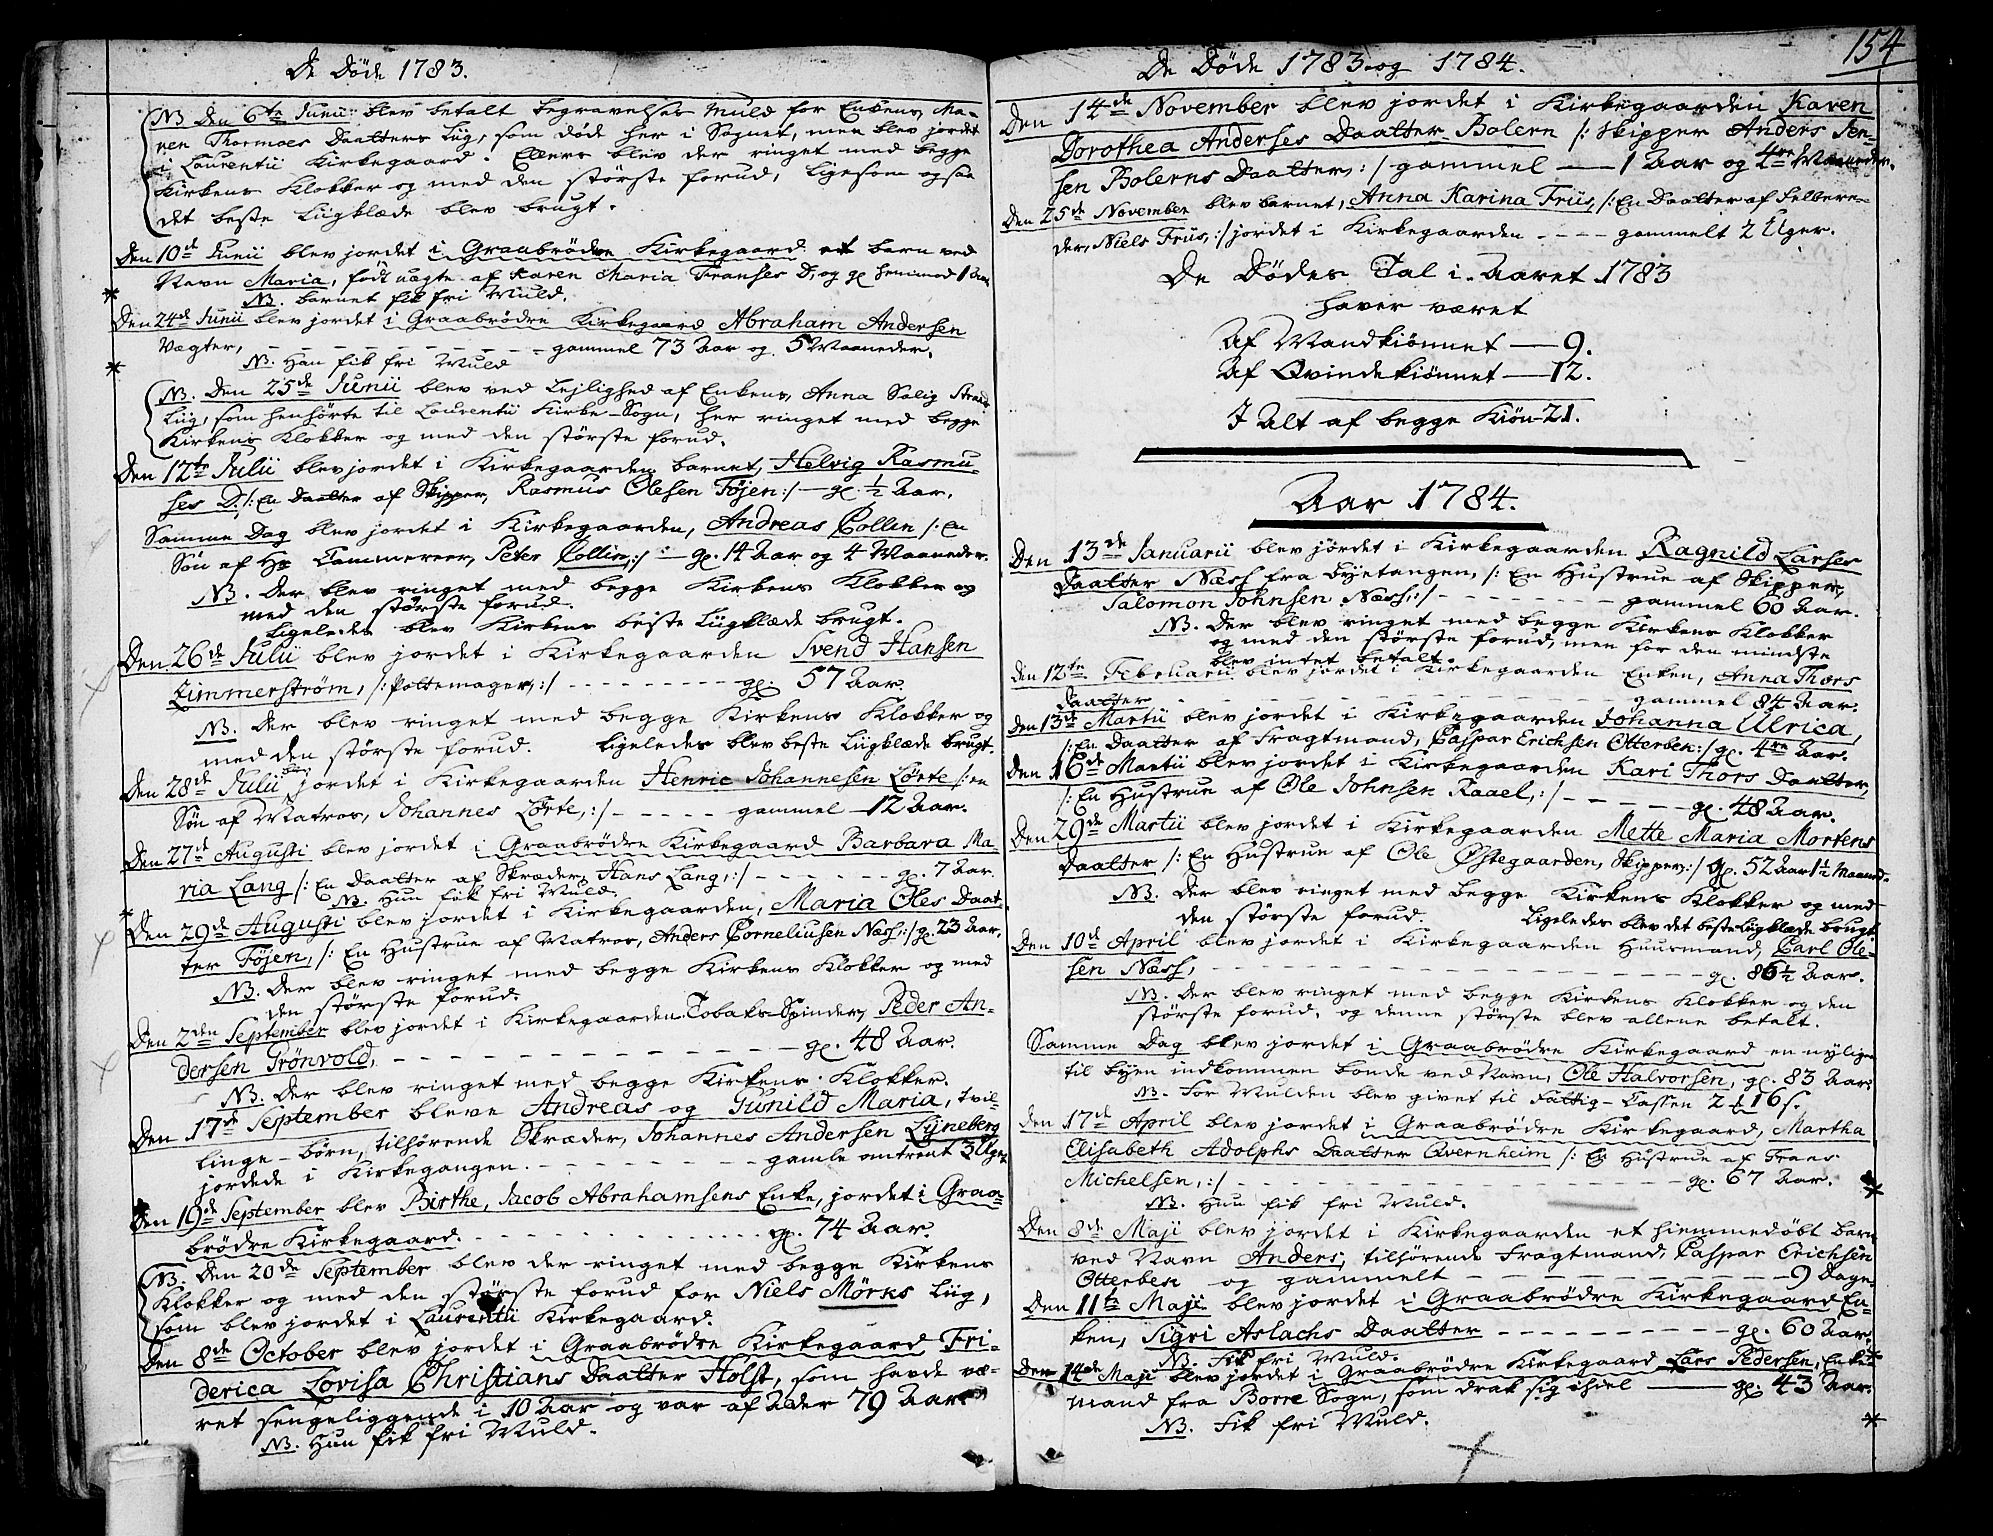 De Døde 1783.
NB. Den 6te Junii blev betalt begravelses Muld for Enken, Ma-
ren Thormoes Daatters Liig, som døde her i Sognet, men blev jordet
i Laurentii Kirkegaard. Ellers blev der ringet med begge
Kirkens Klokker og med den største forud, ligesom ogsaa
det beste Liigklæde blev brugt.
Den 10de Junii blev jordet i Graabrødre Kirkegaard et barn ved
Navn Maria, født uægte af Karen Maria Franses D; og gl. henimod 1 Aar
NB. barnet fik fri Muld.
Den 24de Junii blev jordet i Graabrødre Kirkegaard Abraham Andersen
Vægter, gammel 73 Aar og 5 Maaneder.
NB. Han fik fri Muld
NB. Den 25de Junii blev ved Lejlighed af Enkens, Anna Salig
Liig, som henhørte til Laurentii Kirke-Sogn, her ringet med begge
Kirkens Klokker og med den største forud.
Den 12te Julii blev jordet i Kirkegaarden barnet, Helvig Rasmu-
ses D. /: En Daatter af Skipper, Rasmus Olesen Føjen :/ — gl. ½ Aar.
Samme Dag blev jordet i Kirkegaarden, Andreas Collin /: En
Søn af Hr Cammereer, Peter Collin, :/ — gl. 14 Aar og 4 Maaneder.
NB. Der blev ringet med begge Kirkens Klokker og
med den største forud.
Ligeledes blev Kirkens beste Liigklæde brugt.
Den 26de Julii blev jordet i Kirkegaarden Svend Hansen
Zimmerstrøm, /: Pottemager, :/ gl. 57 Aar.
NB. Der blev ringet med begge Kirkens Klokker og
med den største forud. Ligeledes blev beste Liigklæde brugt.
Den 28de Julii blev jordet i Kirkegaarden Henric Johannesen Lørte /: en
Søn af Matros, Johannes Lørte, :/ gammel 12 Aar.
Den 27de Augusti blev jordet i Graabrødre Kirkegaard Barbara Ma-
ria Lang /: En Daatter af Skræder, Hans Lang, :/ gl. 7 Aar.
NB. Hun fik fri Muld.
Den 29de Augusti blev jordet i Kirkegaarden, Maria Oles Daat-
ter Føjen, /: En Hustrue af Matros, Anders Corneliusen Næss :/ gl. 23 Aar.
NB. Der blev ringet med begge Kirkens Klokker og med
den største forud.
Den 2den September blev jordet i Kirkegaarden Tobaks-Spinder, Peder An-
dersen Grönvold, gl. 48 Aar.
NB. Der blev ringet med begge Kirkens Klokker.
Den 17de September bleve Andreas og Gunild Maria, tvil-
linge-børn, tilhørende Skræder, Johannes Andersen Lyneberg
jordede i Kirkegangen. gamle omtrent 3 Uger
Den 19de September blev Birthe, Jacob Abrahamsens Enke, jordet i Graa-
brödre Kirkegaard. gl. 74 Aar.
NB. Den 20de September blev der ringet med begge Kirkens
Klokker og med den største forud for Niels Mørks Liig,
som blev jordet i Laurentii Kirkegaard.
Den 8de October blev jordet i Graabrødre Kirkegaard Fri-
derica Lovisa Christians Daatter Holst, som havde væ-
ret sengeliggende i 10 Aar og var af Alder 79 Aar
NB. Hun fik fri Muld.
De Døde 1783 og 1784.
154
Den 14de November blev jordet i Kirkegaarden Karen
Dorothea Anderses Daatter Bolern /: Skipper Anders Jen-
sen Bolerns Daatter, :/ gammel — 1 Aar og 4re Maaneder.
Den 25de November blev barnet, Anna Karina Friis, /: En Daatter af Selbere-
der, Niels Friis, :/ jordet i Kirkegaarden gammelt 2 Uger.
De Dødes Tal i Aaret 1783
haver været
Af Mandkiønnet — 9.
Af Qvindekiønnet — 12.
I Alt af begge Kiøn 21.
Aar 1784.
Den 13de Januarii blev jordet i Kirkegaarden Ragnild Larses
Daatter Næss fra Byetangen, /: En Hustrue af Skipper,
Salomon Johnsen Næss, :/ gammel 60 Aar.
NB. Der blev ringet med begge Kirkens Klokker
og med den største forud, men for den mindste
blev intet betalt.
Den 12te Februarii blev jordet i Kirkegaarden Enken, Anna Thors
Daatter gammel 84 Aar.
Den 13de Martii blev jordet i Kirkegaarden Johanna Ulrica,
/: En Daatter af Fragtmand, Caspar Erichsen Otterben :/ gl. 4re Aar.
Den 16de Martii blev jordet i Kirkegaarden Kari Thors Daatter,
/: En Hustrue af Ole Johnsen Raael, :/ gl. 48 Aar.
Den 29de Martii blev jordet i Kirkegaarden Mette Maria Mortens
Daatter /: En Hustrue af Ole Østegaarden, Skipper :/ gl. 52 Aar 1½ Maaned.
NB. Der blev ringet med begge Kirkens Klokker og med
den største forud. Ligeledes blev det beste Liigklæde brugt
Den 10de April blev jordet i Kirkegaarden Huusmand, Carl Ole-
sen Næss, gl. 86½ Aar.
NB. Der blev ringet med begge Kirkens Klokker og den
største forud, og denne største blev allene betalt.
Samme Dag blev jordet i Graabrødre Kirkegaard en nylig
til byen indkommen bonde ved Navn, Ole Halvorsen, gl. 83 Aar
NB. For Mulden blev givet til Fattig-Cassen 2 16 s.
Den 17de April blev jordet i Graabrødre Kirkegaard, Martha
Elisabeth Adolphs Daatter Qvernheim /: En Hustrue af Frans
Michelsen, :/ gl. 67 Aar.
NB. Hun fik fri Muld.
Den 8de Maji blev jordet i Kirkegaarden et hiemmedøbt barn
ved Navn Anders, tilhørende Fragtmand, Caspar Erichsen
Otterben og gammelt 9 Dage
Den 11te Maji blev jordet i Graabrødre Kirkegaard En-
ken, Sigri Aslachs Daatter gl. 60 Aar.
NB. Fik fri Muld.
Den 14de Maji blev jordet i Graabrødre Kirkegaard Lars Pedersen, Enke-
mand fra Borre Sogn, som drak sig ihiel — gl. 43 Aar.
NB. Fik fri Muld.